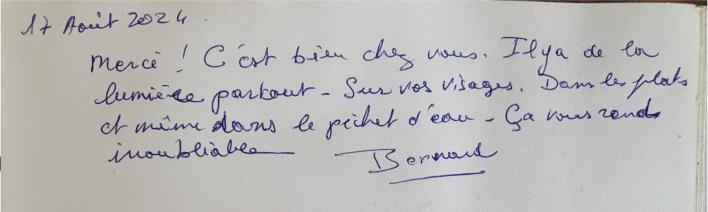 17 Août 2024
Merci ! C'est bien chez vous. Il y a de la
lumière partout - Sur vos visages. Dans les plats
et même dans le pichet d'eau - Ça vous rends
inoubliable
Bernard